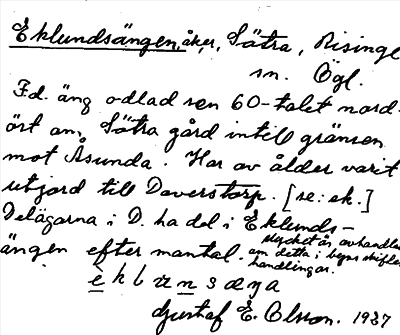 Eklundsängen, åker, Sätra, Risinge
sn. Ögl.
F.d. äng odlad sen 60-talet nord-
öst om Sätra gård intill gränsen
mot Åsunda. Har av ålder varit
utjord till Daverstorp. [se: ek.]
Delägarna i D. ha del i Eklunds-
ängen efter mantal.
Mycket är avhandlat
om detta i byns skiftes-
handlingar.
Gustaf E. Olsson. 1927